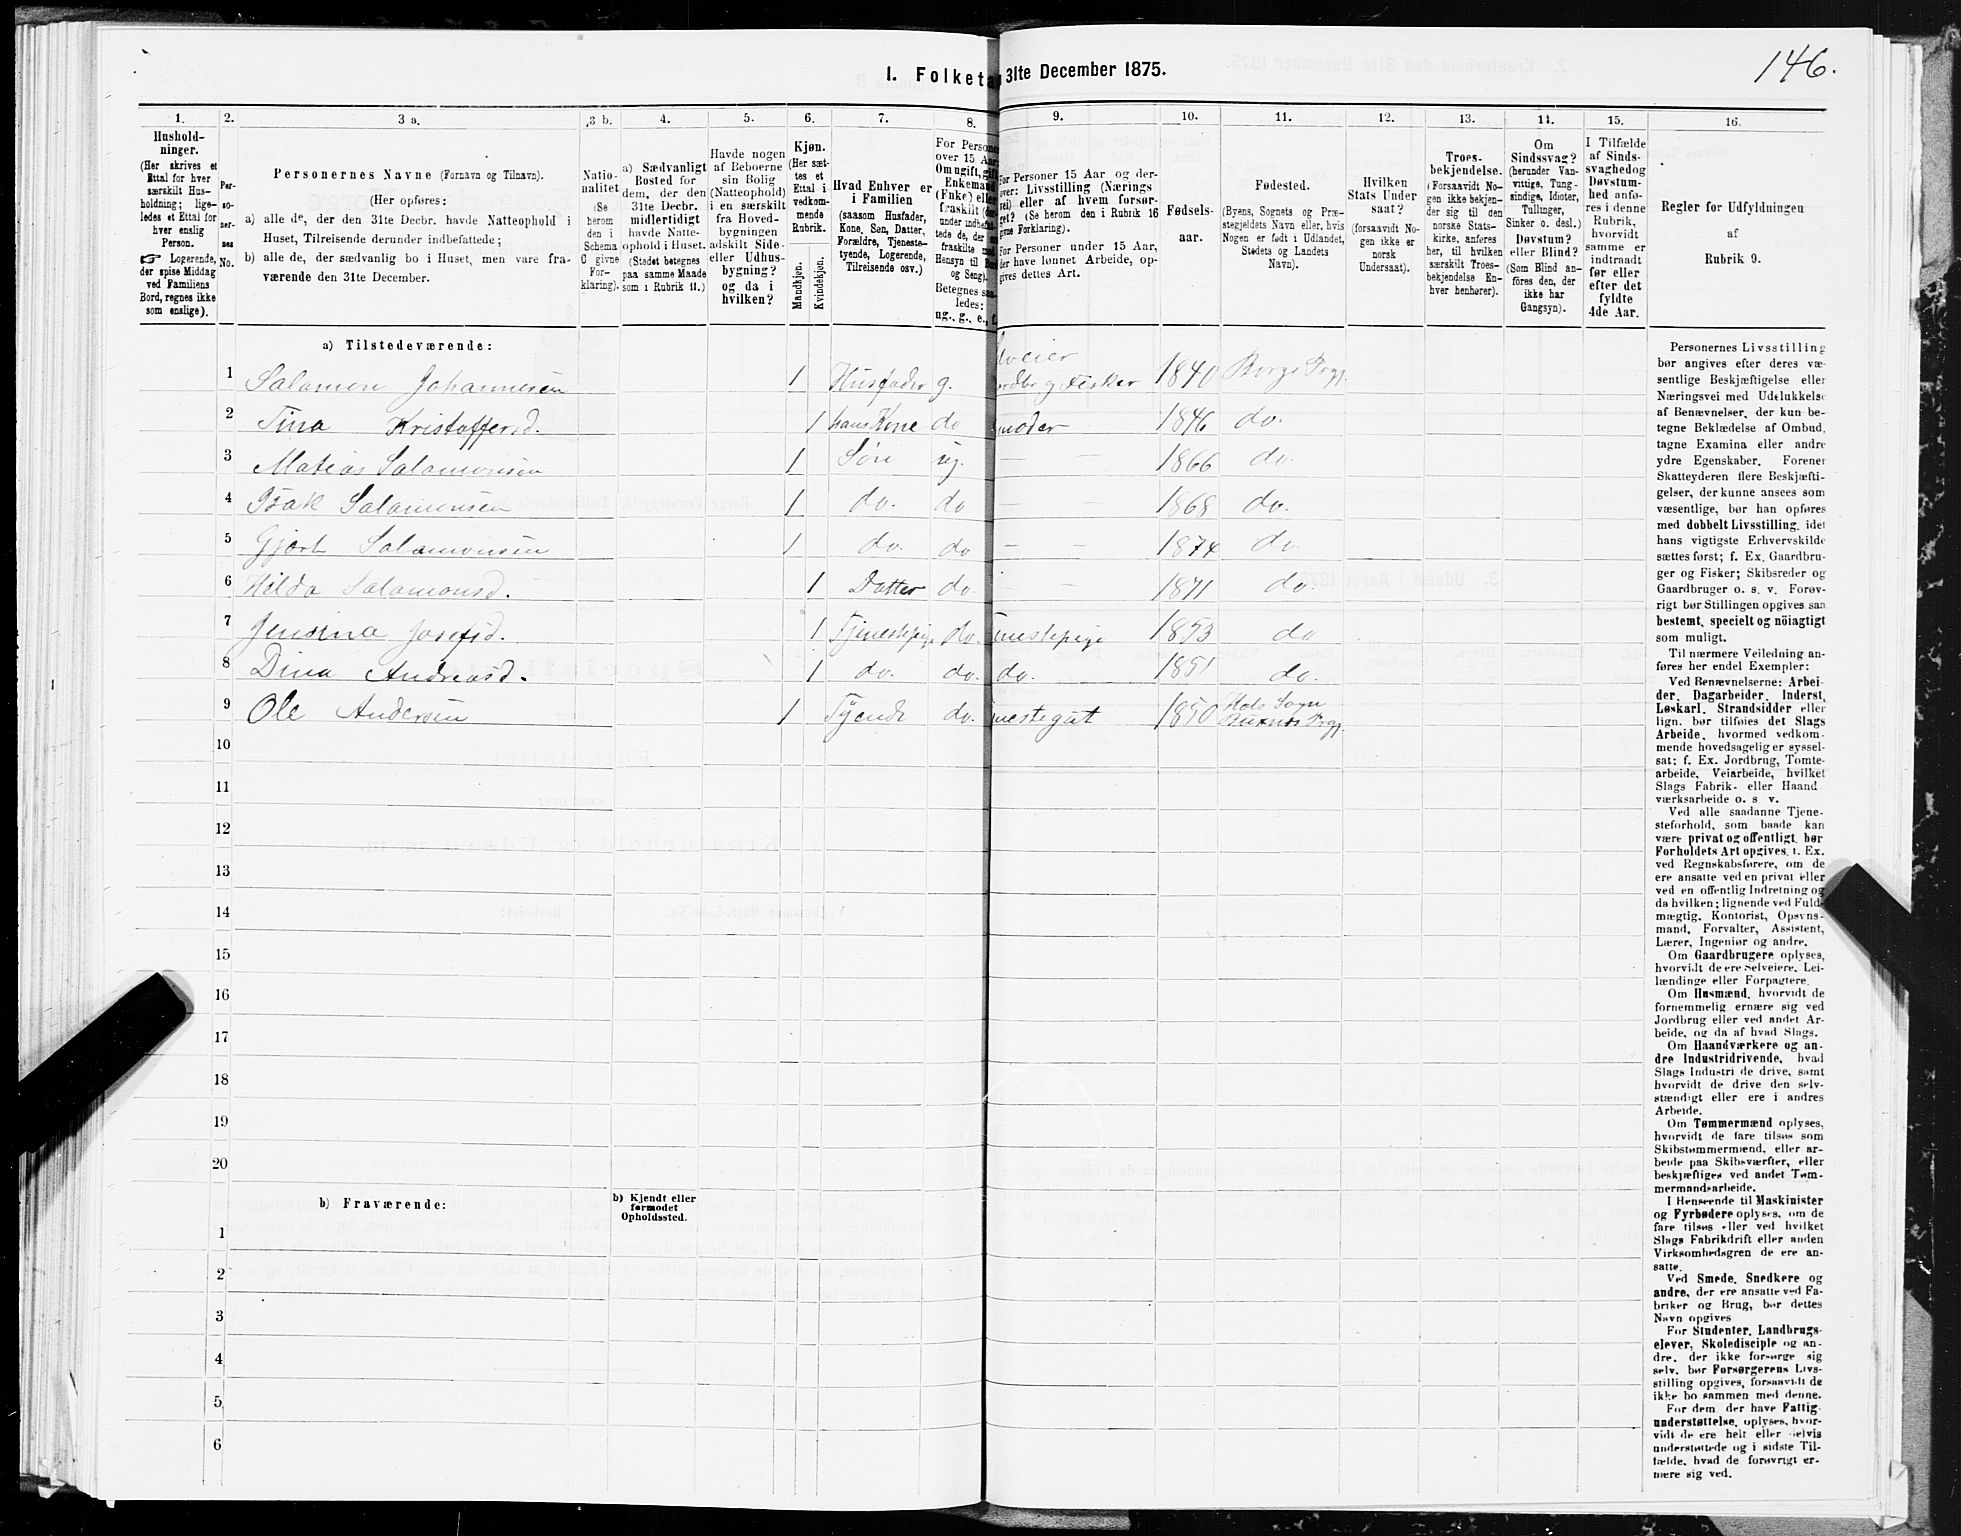 146.
I. Folketa 31te December 1875.
1. 2. 3 a. 3 b. 4. 5. 6. 7. 8. 9. 10. 11. 12. 13. 14. 15. 16.
Hushold-
ninger.
(Her skrives et
Ettal for hver
særskilt Hus-
holdning; lige-
ledes et Ettal for
hver enslig
Person.
☞ Logerende,
der spise Middag
ved Familiens
Bord, regnes ikke
som enslige).
Per-
so-
ner-
nes
No.
Personernes Navne (Fornavn og Tilnavn).
(Her opføres:
a) alle de, der den 31te Decbr. havde Natteophold i
Huset, Tilreisende derunder indbefattede;
b) alle de, der sædvanlig bo i Huset, men vare fra-
værende den 31te December.
Natio-
nalitet
(Se
herom
den i
Schema
C givne
For-
klaring).
a) Sædvanligt
Bosted for
dem, der den
31te Decbr.
midlertidigt
havde Natte-
ophold i Huset.
(Stedet betegnes
paa samme Maade
som i Rubrik 11.)
Havde nogen
af Beboerne
sin Bolig
(Natteophold)
i en særskilt
fra Hoved-
bygningen
adskilt Side-
eller Udhus-
bygning?
og da i
hvilken?
Kjøn.
(Her sæt-
tes et
Ettal i
vedkom-
mende
Rubrik.
Mandkjøn.
Kvindekjøn.
Hvad Enhver er
i Familien
(saasom Husfader,
Kone, Søn, Datter,
Forældre, Tjeneste-
tyende, Logerende,
Tilreisende osv.)
For Persone
over 15 Aar
Om ugift, gift
Enkemand
(Enke) elle
fraskilt (de
under indbefat-
tede de, der e
fraskilte med
Hensyn til Bo
og Seng).
Betegnes saa-
ledes:
ug., g., e., f.
For Personer 15 Aar og der-
over: Livsstilling (Nærings
vei) eller af hvem forsør-
get? (Se herom den i Rubrik 16
givne Forklaring).
For Personer under 15 Aar,
der have lønnet Arbeide, op-
gives dettes Art.
Fødsels-
aar.
Fødested.
(Byens, Sognets og Præ-
stegjeldets Navn eller, hvis
Nogen er født i Udlandet,
Stedets og Landets
Navn).
Hvilken
Stats Under
saat?
(forsaavidt No-
gen ikke er
norsk
Undersaat).
Troes-
bekjendelse.
(Forsaavidt No-
gen ikke bekjen-
der sig til den
norske Stats-
kirke, anføres
her, til hvilken
særskilt Troes-
bekjendelse En-
hver henhører).
Om
Sindssvag?
(herunder Van-
vittige, Tung-
sindige, Idioter,
Tullinger,
Sinker o. desl.)
Døvstum?
eller Blind?
(Som Blind an-
føres den, der
ikke har
Gangsyn).
I Tilfælde
af Sinds-
svaghedog
Døvstum-
hed anfø-
res i denne
Rubrik,
hvorvidt
samme er
indtraadt
før eller
efter det
fyldte
4de Aar.
Regler for Udfyldningen
af
Rubrik 9.
a) Tilstedeværende:
1 Salamon Johannesen 1 Husfader g. Selveier Jordbr. og Fisker 1840 Borge Prgj.
2 Tina Kristoffersd. 1 hans Kone do moder 1846 do.
3 Matias Salamonsen 1 Søn ug. — — 1866 do.
4 Isak Salamonsen 1 do. do — 1868 do.
5 Gjert Salamonsen 1 do. do — — 1874 do.
6 Hilda Salamonsd. 1 Datter do. — 1871 do.
7 Jensina Josefsd. 1 Tjenestepige do. enestepige 1853 do
8 Dina Andreasd. 1 do. do. do. 1851 do.
9 Ole Andersen 1 Tyende do. enestegut 1850 Hols Sogn Buxnes Prgj.
10
11
12
13
14
15
16
17
18
19
20
b) Fraværende:
b) Kjendt eller
formodet
Opholdssted.
1
2
3
4
5
6
Personernes Livsstilling
bør angives efter deres væ-
sentlige Beskjæftigelse eller
Næringsvei med Udelukkelse
af Benævnelser, der kun be-
tegne Beklædelse af Ombud,
tagne Examina eller andre
ydre Egenskaber. Forener
Skatteyderen flere Beskjæfti-
gelser, der kunne ansees som
væsentlige, bør han opføres
med dobbelt Livsstilling, idet
hans vigtigste Erhvervskilde
sættes først; f. Ex. Gaardbru-
ger og Fisker; Skibsreder og
Gaardbruger o. s. v. Forøv-
rigt bør Stillingen opgives saa
bestemt, specielt og nöiagtigt
som muligt.
Til nærmere Veiledning an-
føres her endel Exempler:
Ved Benævnelserne: Arbei-
der, Dagarbeider, Inderst,
Løskarl, Strandsidder eller
lign. bør tilføies det Slags
Arbeide, hvormed vedkom-
mende hovedsagelig er syssel-
sat; f. Ex. Jordbrug, Tomte-
arbeide, Veiarbeide, hvilket
Slags Fabrik- eller Haand-
værksarbeide o. s. v.
Ved alle saadanne Tjene-
steforhold, som baade kan
være privat og offentligt, bør
Forholdets Art opgives, f. Ex.
ved Regnskabsførere, om de
ere ansatte ved en privat eller
ved en offentlig Indretning og
da hvilken; lignende ved Fuld-
mægtig, Kontorist, Opsyns-
mand, Forvalter, Assistent,
Lærer, Ingeniør og andre.
Om Gaardbrugere oplyses,
hvorvidt de ere Selveiere, Lei-
lændinge eller Forpagtere.
Om Husmænd, hvorvidt de
fornemmelig ernære sig ved
Jordbrug eller ved andet Ar-
beide, og da af hvad Slags.
Om Haandværkere og an-
dre Industridrivende, hvad
Slags Industri de drive, samt
hvorvidt de drive den selv-
stændigt eller ere i andres
Arbeide.
Om Tømmermænd oplyses,
hvorvidt de fare tilsøs som
Skibstømmermænd, eller ar-
beide paa Skibsværfter, eller
beskjæftiges ved andet Tøm-
mermandsarbeide.
I Henseende til Maskinister
og Fyrbødere oplyses, om de
fare tilsøs eller ved hvilket
Slags Fabrikdrift eller anden
Virksomhedsgren de ere an-
satte.
Ved Smede, Snedkere og
andre, der ere ansatte ved Fa-
briker og Brug, bør dettes
Navn opgives
For Studenter, Landbrugs-
elever, Skoledisciple og an-
dre, der ikke forsørge sig
selv, bør Forsørgerens Livs-
stilling opgives, forsaavidt de
ikke bo sammen med denne.
For dem, der have Fattig-
understøttelse, oplyses, hvor-
vidt de ere helt eller delvis
understøttede og i sidste Til-
fælde, hvad de forøvrigt er-
nære sig ved.